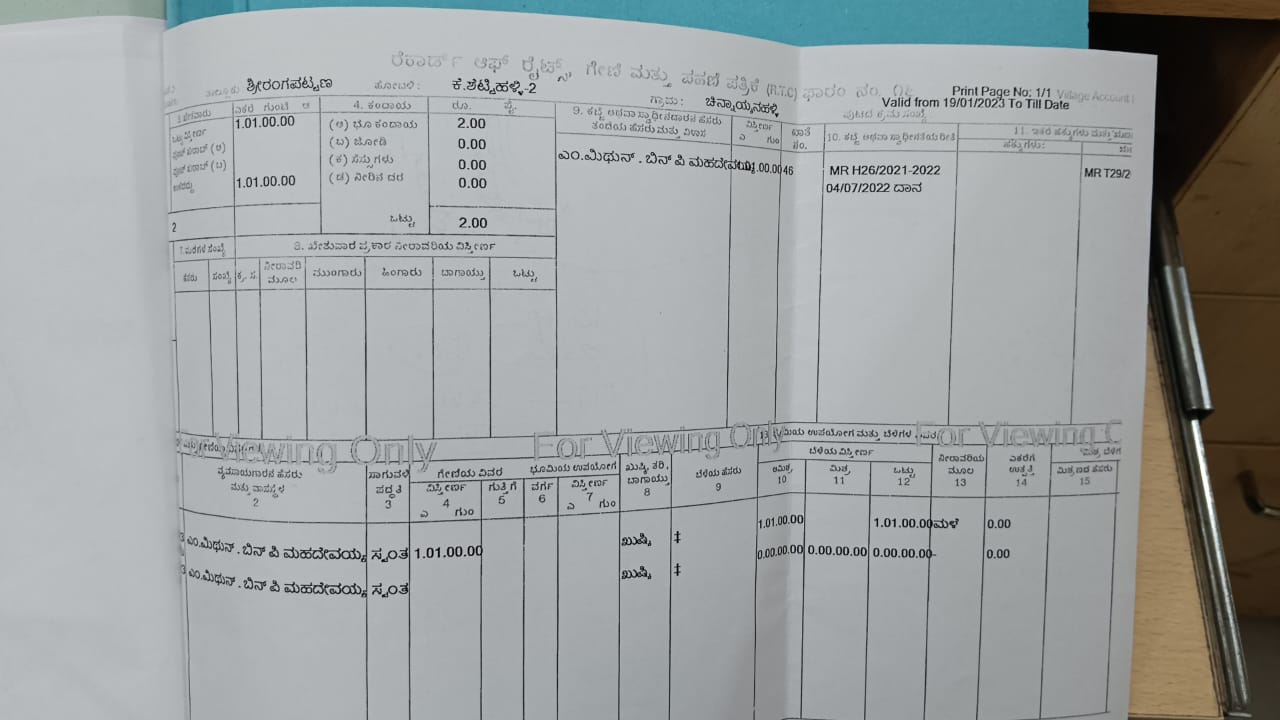 ರೆಕಾರ್ಡ್ ಆಫ್ ರೈಟ್ಸ್, ಗೇಣಿ ಮತ್ತು ಪಹಣಿ ಪತ್ರಿಕೆ (R.T.C) ಫಾರಂ ನಂ. ೧೬
Print Page No: 1/1 Village Account
ತಾಲ್ಲೂಕು ಶ್ರೀರಂಗಪಟ್ಟಣ ಹೋಬಳಿ : ಕೆ.ಶೆಟ್ಟಿಹಳ್ಳಿ-2 ಗ್ರಾಮ : ಚಿನ್ನಾಯ್ಕನಹಳ್ಳಿ
Valid from 19/01/2023 To Till Date
ಪುಟದ ಕ್ರಮ ಸಂಖ್ಯೆ
ಎಕರೆ ಗುಂಟೆ ಆ 4. ಕಂದಾಯ ರೂ. ಪೈ.
9. ಕಬ್ಜೆ ಅಥವಾ ಸ್ವಾಧೀನದಾರನ ಹೆಸರು
ತಂದೆಯ ಹೆಸರು ಮತ್ತು ವಿಳಾಸ
ವಿಸ್ತೀರ್ಣ
ಎ ಗುಂ
ಖಾತೆ
ನಂ.
10. ಕಬ್ಜೆ ಅಥವಾ ಸ್ವಾಧೀನತೆಯ ರೀತಿ
11. ಇತರ ಹಕ್ಕುಗಳು ಮತ್ತು
ಹಕ್ಕುಗಳು:
ಒಟ್ಟು ವಿಸ್ತೀರ್ಣ 1.01.00.00 (ಅ) ಭೂ ಕಂದಾಯ 2.00
ಪೂಟ್ ಖರಾಬ್ (ಅ) (ಬ) ಜೋಡಿ 0.00
ಪೂಟ್ ಖರಾಬ್ (ಬ) (ಕ) ಸೆಸ್ಸುಗಳು 0.00
ಉಳಿದದ್ದು 1.01.00.00 (ಡ) ನೀರಿನ ದರ 0.00
2 ಒಟ್ಟು 2.00
ಎಂ.ಮಿಥುನ್ . ಬಿನ್ ಪಿ ಮಹದೇವಯ್ಯ 1.01.00.00 46
MR H26/2021-2022
04/07/2022 ದಾನ
MR T29/2
7. ಮರಗಳ ಸಂಖ್ಯೆ 8. ಖೇತುವಾರ ಪ್ರಕಾರ ನೀರಾವರಿಯ ವಿಸ್ತೀರ್ಣ
ಹೆಸರು ಸಂಖ್ಯೆ ಕ್ರ. ಸ. ನೀರಾವರಿ ಮೂಲ ಮುಂಗಾರು ಹಿಂಗಾರು ಬಾಗಾಯ್ತು ಒಟ್ಟು
Viewing Only For Viewing Only For Viewing
ಭೂಮಿಯ ಉಪಯೋಗ ಮತ್ತು ಬೆಳೆಗಳ
ವ್ಯವಸಾಯಗಾರನ ಹೆಸರು
ಮತ್ತು ವಾಸಸ್ಥಳ
2
ಸಾಗುವಳಿ
ಪದ್ಧತಿ
3
ಗೇಣಿಯ ವಿವರ
ವಿಸ್ತೀರ್ಣ
4
ಎ ಗುಂ
ಗುತ್ತಿಗೆ
5
ಭೂಮಿಯ ಉಪಯೋಗ
ವರ್ಗ
6
ವಿಸ್ತೀರ್ಣ
7
ಎ ಗುಂ
ಖುಷ್ಕಿ, ತರಿ,
ಬಾಗಾಯ್ತು
8
ಬೆಳೆಯ ಹೆಸರು
9
ಬೆಳೆಯ ವಿಸ್ತೀರ್ಣ
ಅಮಿಶ್ರ
10
ಮಿಶ್ರ
11
ಒಟ್ಟು
12
ನೀರಾವರಿಯ
ಮೂಲ
13
ಎಕರೆಗೆ
ಉತ್ಪತ್ತಿ
14
ಮಿಶ್ರ ಬೆಳೆಗ
ಮಿಶ್ರಣದ ಹೆಸರು
15
ಎಂ.ಮಿಥುನ್ . ಬಿನ್ ಪಿ ಮಹದೇವಯ್ಯ ಸ್ವಂತ 1.01.00.00 ಖುಷ್ಕಿ ‡ 1.01.00.00 1.01.00.00 ಮಳೆ 0.00
ಎಂ.ಮಿಥುನ್ . ಬಿನ್ ಪಿ ಮಹದೇವಯ್ಯ ಸ್ವಂತ ಖುಷ್ಕಿ ‡ 0.00.00.00 0.00.00.00 0.00.00.00 - 0.00